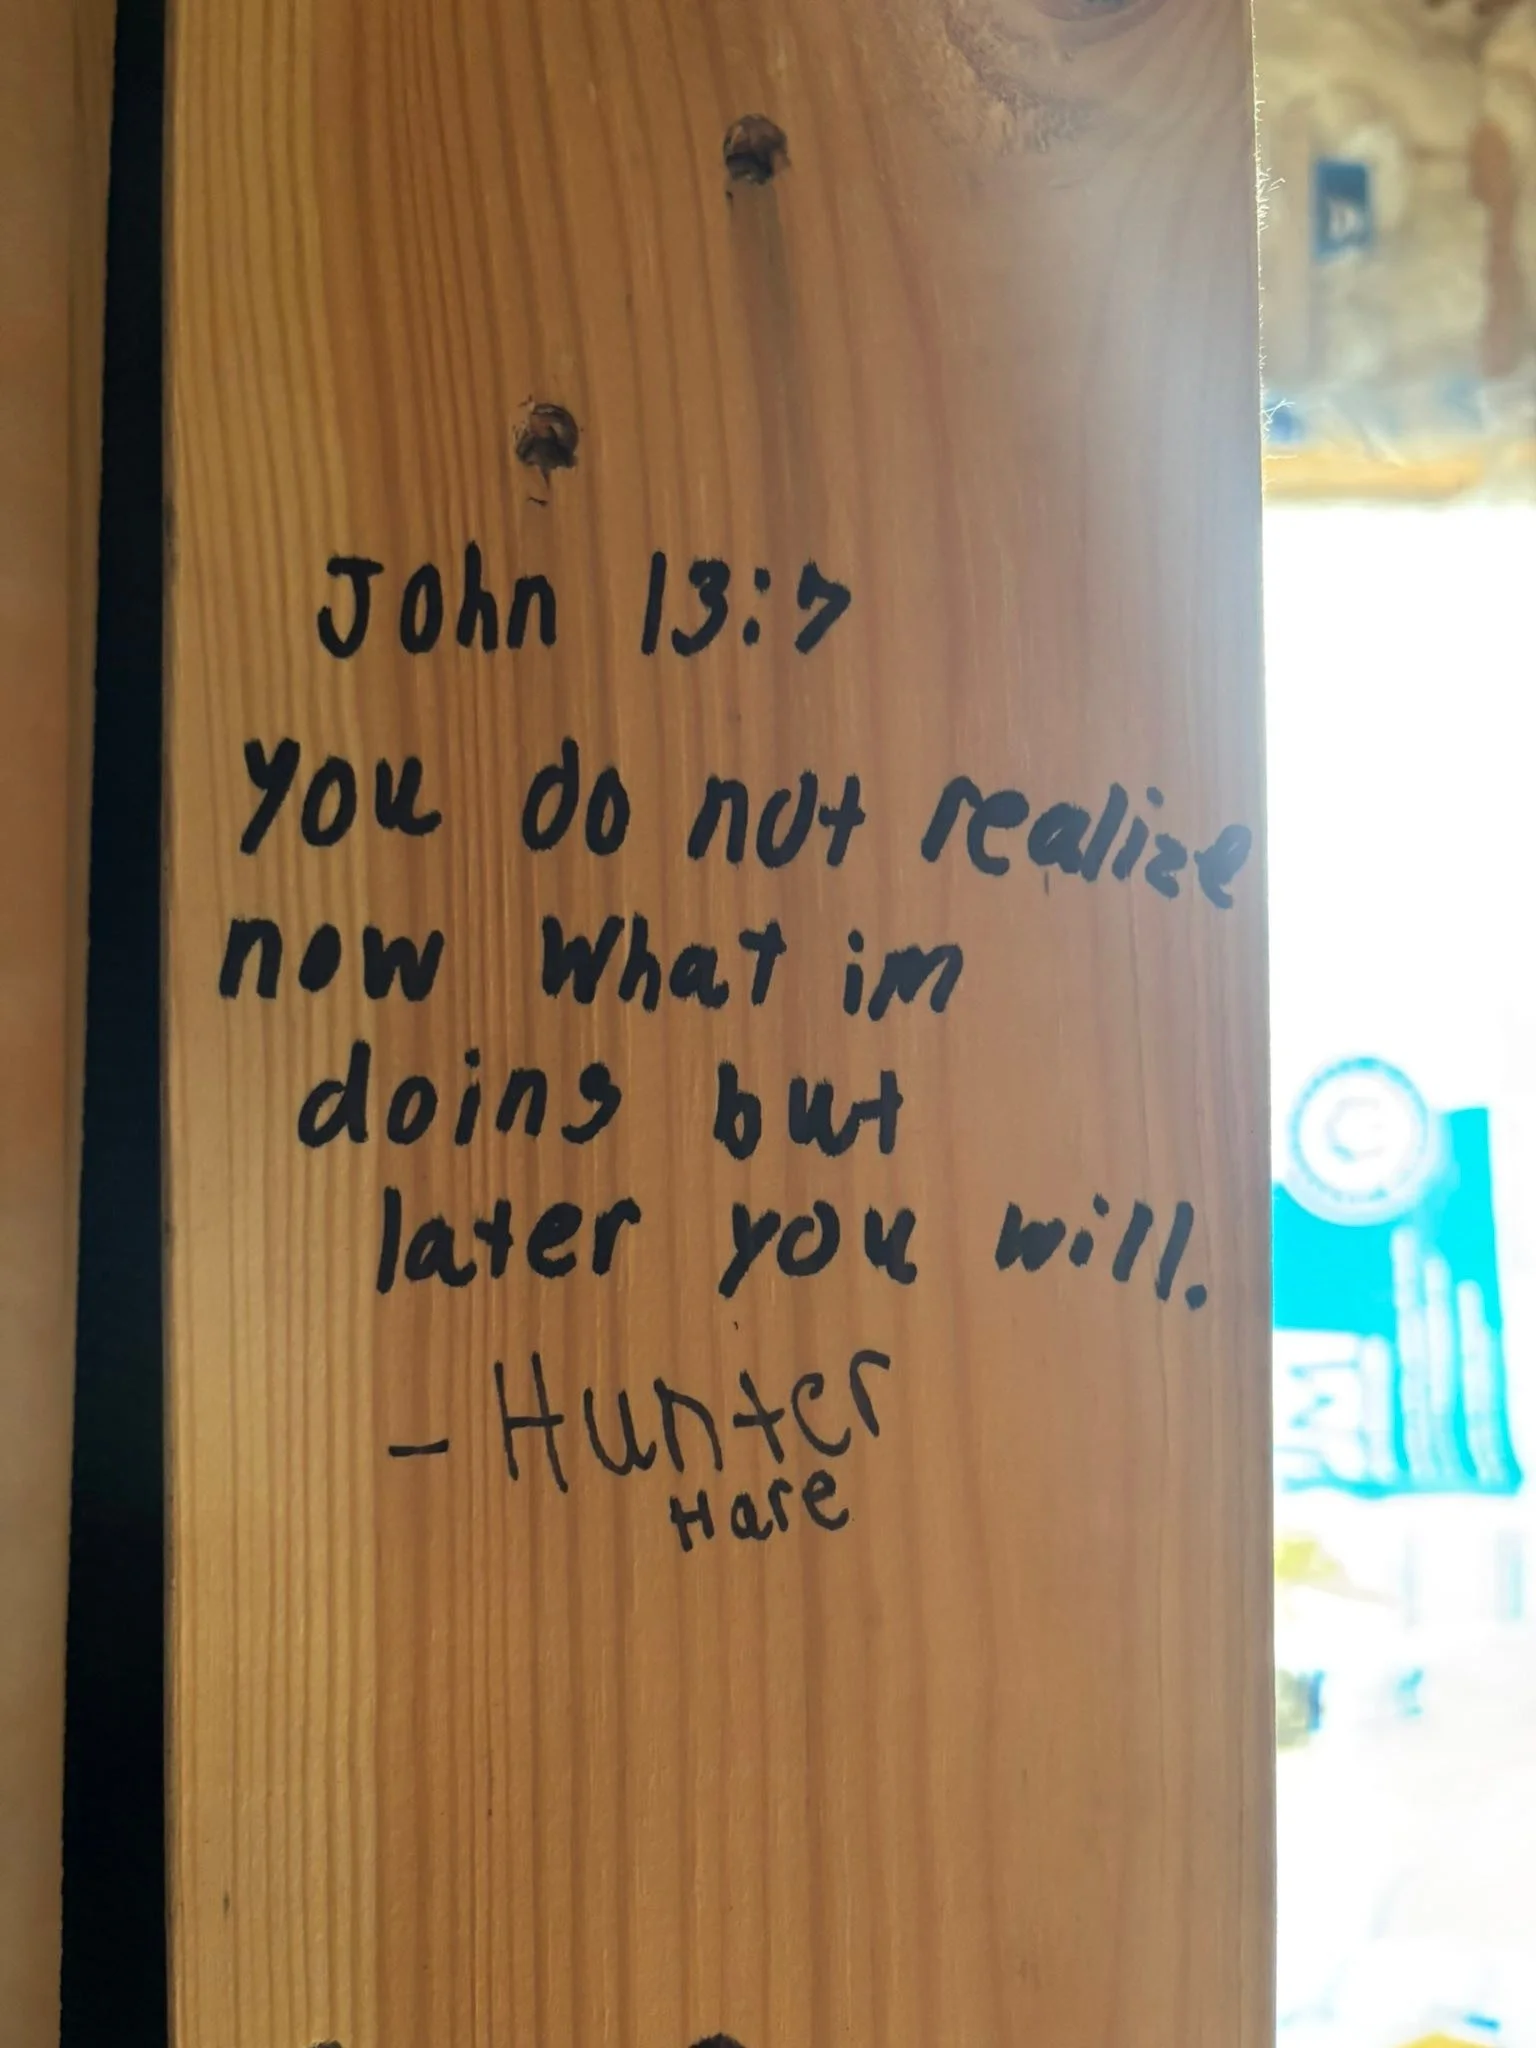 John 13:7
you do not realize
now what im
doing but
later you will.
- Hunter
Hare